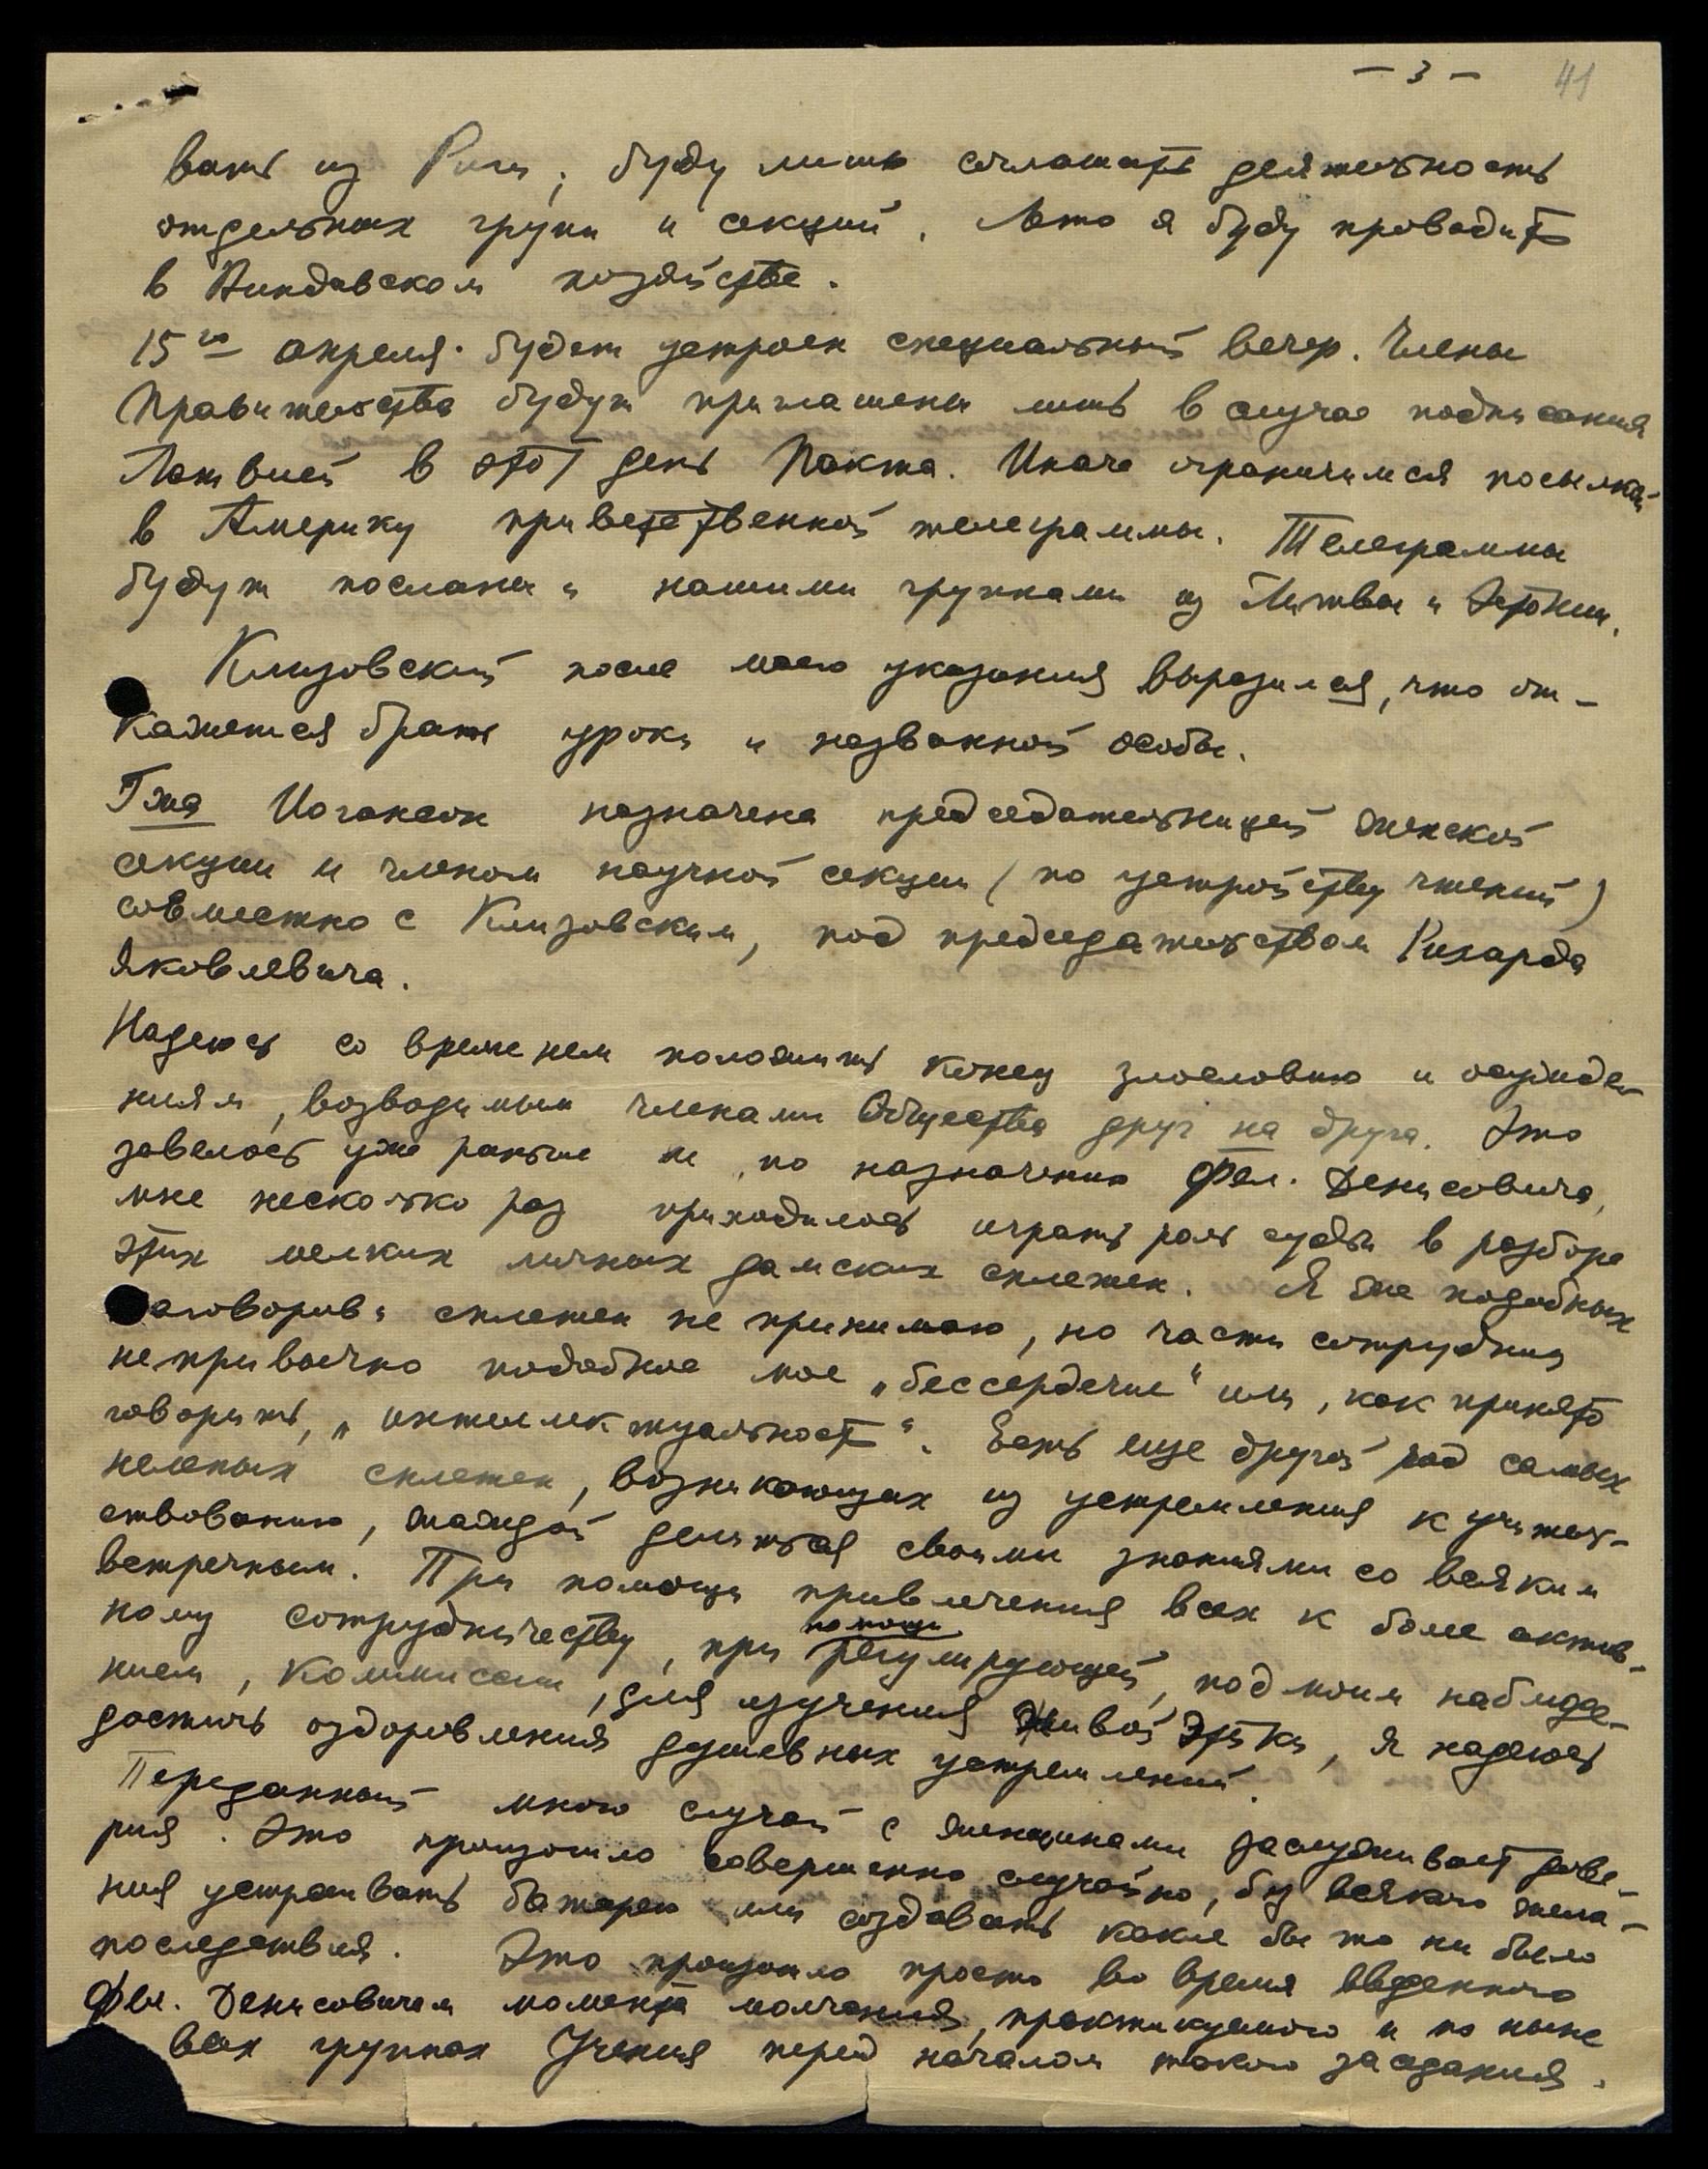 — 3 — 41
вать из Риги; буду лишь соглашать деятельность
отдельных групп и секций. Лето я буду проводить
в Виндавском хозяйстве.
15го апреля будет устроен специальный вечер. Члены
Правительства будут приглашены лишь в случае подписания
Латвией в этот день Пакта. Иначе ограничимся посылкой
в Америку приветственной телеграммы. Телеграммы
будут посланы и нашими группами из Литвы и Эстонии.
Клизовский после моего указания выразился, что от-
кажется брать уроки у названной особы.
Гжа Иогансон назначена председательницей женской
секции и членом научной секции (по устройству чтений)
совместно с Клизовским, под председательством Рихарда
Яковлевича.
Надеюсь со временем положить конец злословию и осужде-
ниям, возводимым членами Общества друг на друга. Это
завелось уже раньше и, по назначению Фел. Денисовича,
мне несколько раз приходилось играть роль судьи в разборе
этих мелких личных дамских сплетен. Я же подобных
заговоров и сплетен не принимаю, но части сотрудниц
непривычно подобное мое „бессердечие" или, как принято
говорить, „интеллектуальность". Есть еще другой род самых
нелепых сплетен, возникающих из устремления к учитель-
ствованию, жаждой делиться своими знаниями со всяким
встречным. При помощи привлечения всех к более актив-
ному сотрудничеству, при помощи регулирующей, под моим наблюде-
нием, комиссии, для изучения Живой Этики, я надеюсь
достичь оздоровления душевных устремлений.
Переданный мною случай с женщинами заслуживает дове-
рия. Это произошло совершенно случайно, без всякого жела-
ния устраивать батарею или создавать какие бы то ни было
последствия. Это произошло просто во время введенного
Фел. Денисовичем момента молчания, практикуемого и по ныне
всех группах Учения перед началом такого заседания.